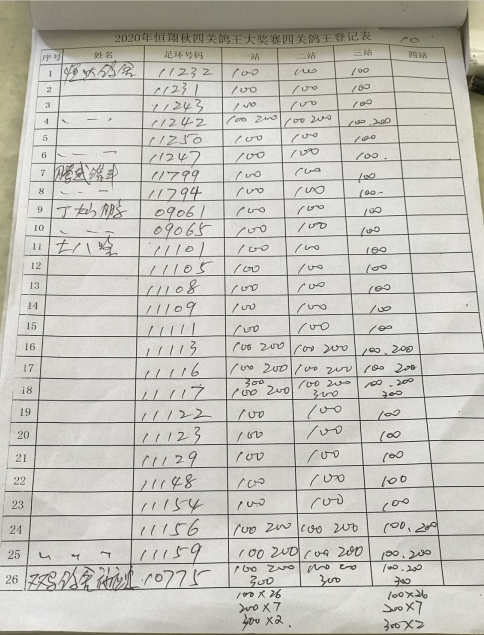 2020年恒翔秋四关鸽王大奖赛四关鸽王登记表
序号 姓名 足环号码 一站 二站 三站 四站
1 恒 鸽舍 11232 100 100 100
2 11231 100 100 100
3 11243 100 100 100
4 11242 100 200 100 200 100.200
5 11250 100 100 100
6 11247 100 100 100.
7 11799 100 100 100
8 11794 100 100 100-
9 09061 100 100 100
10 09065 100 100 100
11 11101 100 100 100
12 11105 100 100 100
13 11108 100 100 100
14 11109 100 100 100
15 11111 100 100 100
16 11113 100 200 100 200 100.200
17 11116 100 200 100 200 100 200
18 11117 300 100 200 100 200 300 100.200 300
19 11122 100 100 100
20 11123 100 100 100
21 11129 100 100 100
22 11148 100 100 100
23 11154 100 100 100
24 11156 100 200 100 200 100.200
25 11159 100 200 100 200 100.200
26 10775 100 200 300 100 200 300 100.200 300
100×26 100×26
200×7 200×7
300×2. 300×2